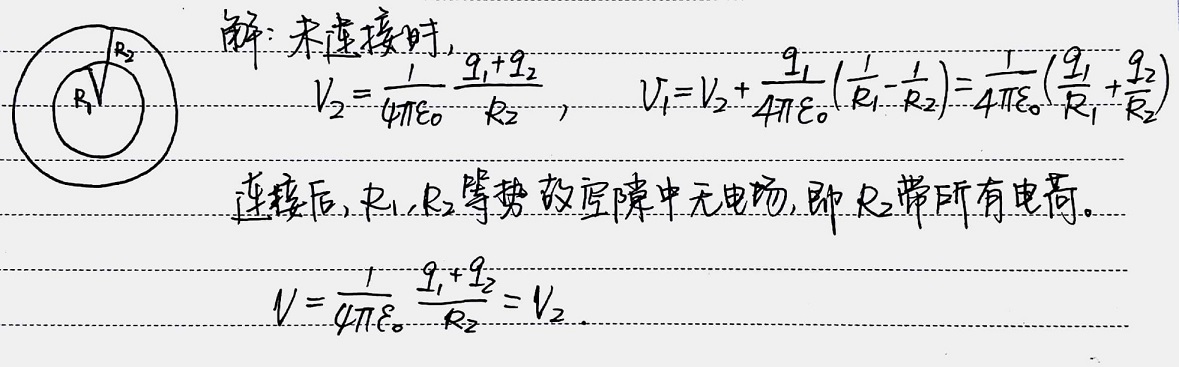 R₂
R₁
解：未连接时，
V₂ = \frac{1}{4πε₀} \frac{q₁+q₂}{R₂} ， U₁ = V₂ + \frac{q₁}{4πε₀} (\frac{1}{R₁} - \frac{1}{R₂}) = \frac{1}{4πε₀} (\frac{q₁}{R₁} + \frac{q₂}{R₂})
连接后，R₁，R₂等势 故空隙中无电场，即 R₂带所有电荷。
V = \frac{1}{4πε₀} \frac{q₁+q₂}{R₂} = V₂ .